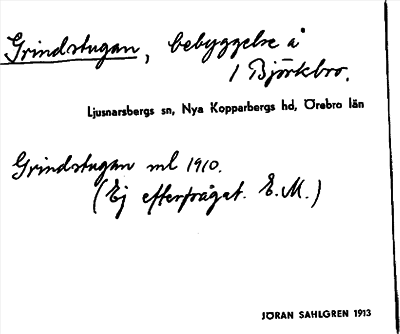 Grindstugan, bebyggelse å
1 Björkbro.
Ljusnarsbergs sn, Nya Kopparbergs hd, Örebro län
Grindstugan ml 1910.
(Ej efterfrågat. E.M.)
JÖRAN SAHLGREN 1913